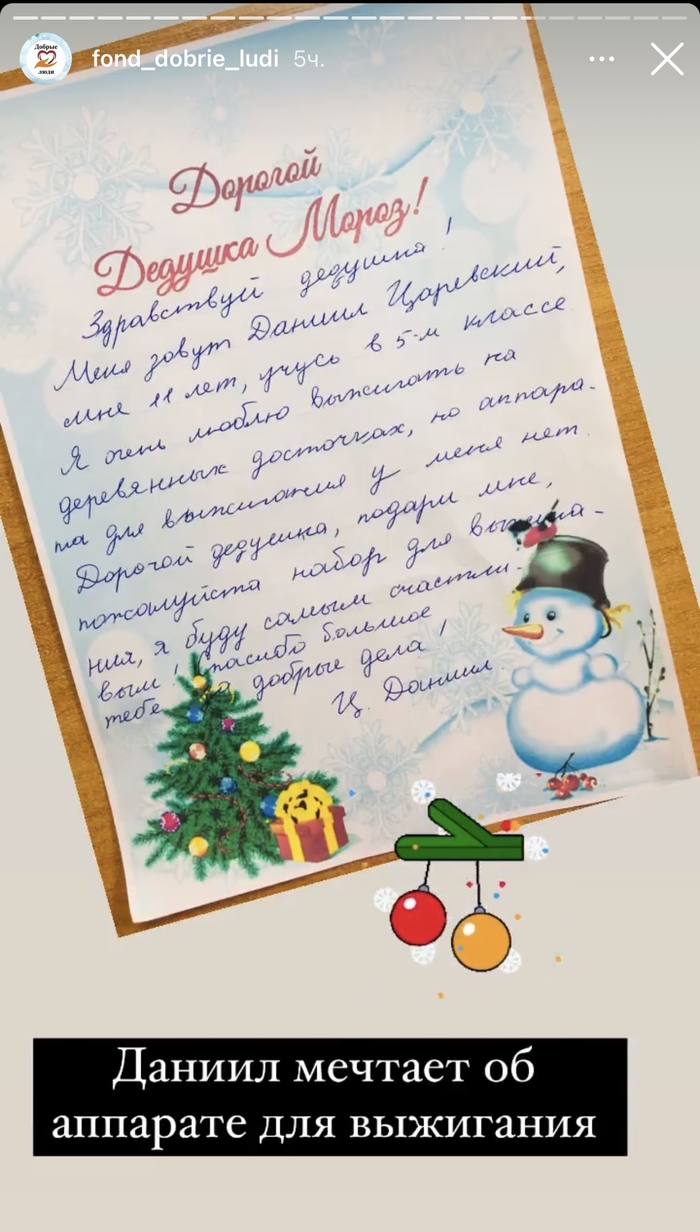 Добрые
люди
fond_dobrie_ludi 5ч.
Дорогой
Дедушка Мороз!
Здравствуй дедушка!
Меня зовут Даниил Царевский,
мне 11 лет, учусь в 5-м классе
Я очень люблю выжигать на
деревянных досточках, но аппара-
та для выжигания у меня нет.
Дорогой дедушка, подари мне,
пожалуйста набор для выжига-
ния, я буду самым счастли-
вым! Спасибо большое
тебе за добрые дела!
Ц. Даниил
Даниил мечтает об
аппарате для выжигания